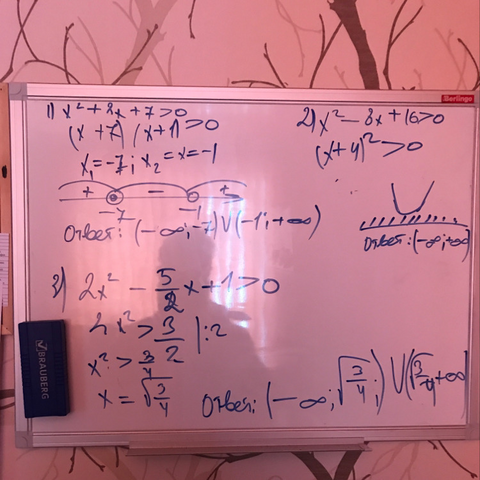 Berlingo
1) x² + 8x + 7 > 0
(x + 7) (x + 1) > 0
x₁ = -7; x₂ = x = -1
+ - +
-7 -1
Ответ: (-∞; -7) ∪ (-1; +∞)
2) x² - 8x + 16 > 0
(x + 4)² > 0
Ответ: (-∞; +∞)
3) 2x² - 5/2 x + 1 > 0
2x² > 3/2 | : 2
x² > 3/4
x = √3/4
Ответ: (-∞; √3/4;) ∪ (√3/4; +∞
BRAUBERG